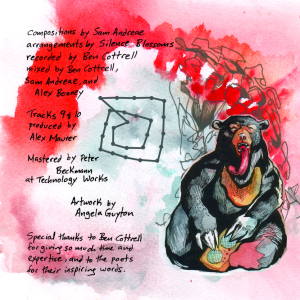 Compositions by Sam Andreae
arrangements by Silence Blossoms
recorded by Ben Cottrell
mixed by Ben Cottrell,
Sam Andreae, and
Alex Bonney
Tracks 9 & 10
produced by
Alex Maurer
Mastered by Peter
Beckmann
at Technology Works
Artwork by
Angela Guyton
Special thanks to Ben Cottrell
for giving so much time and
expertise, and to the poets
for their inspiring words.